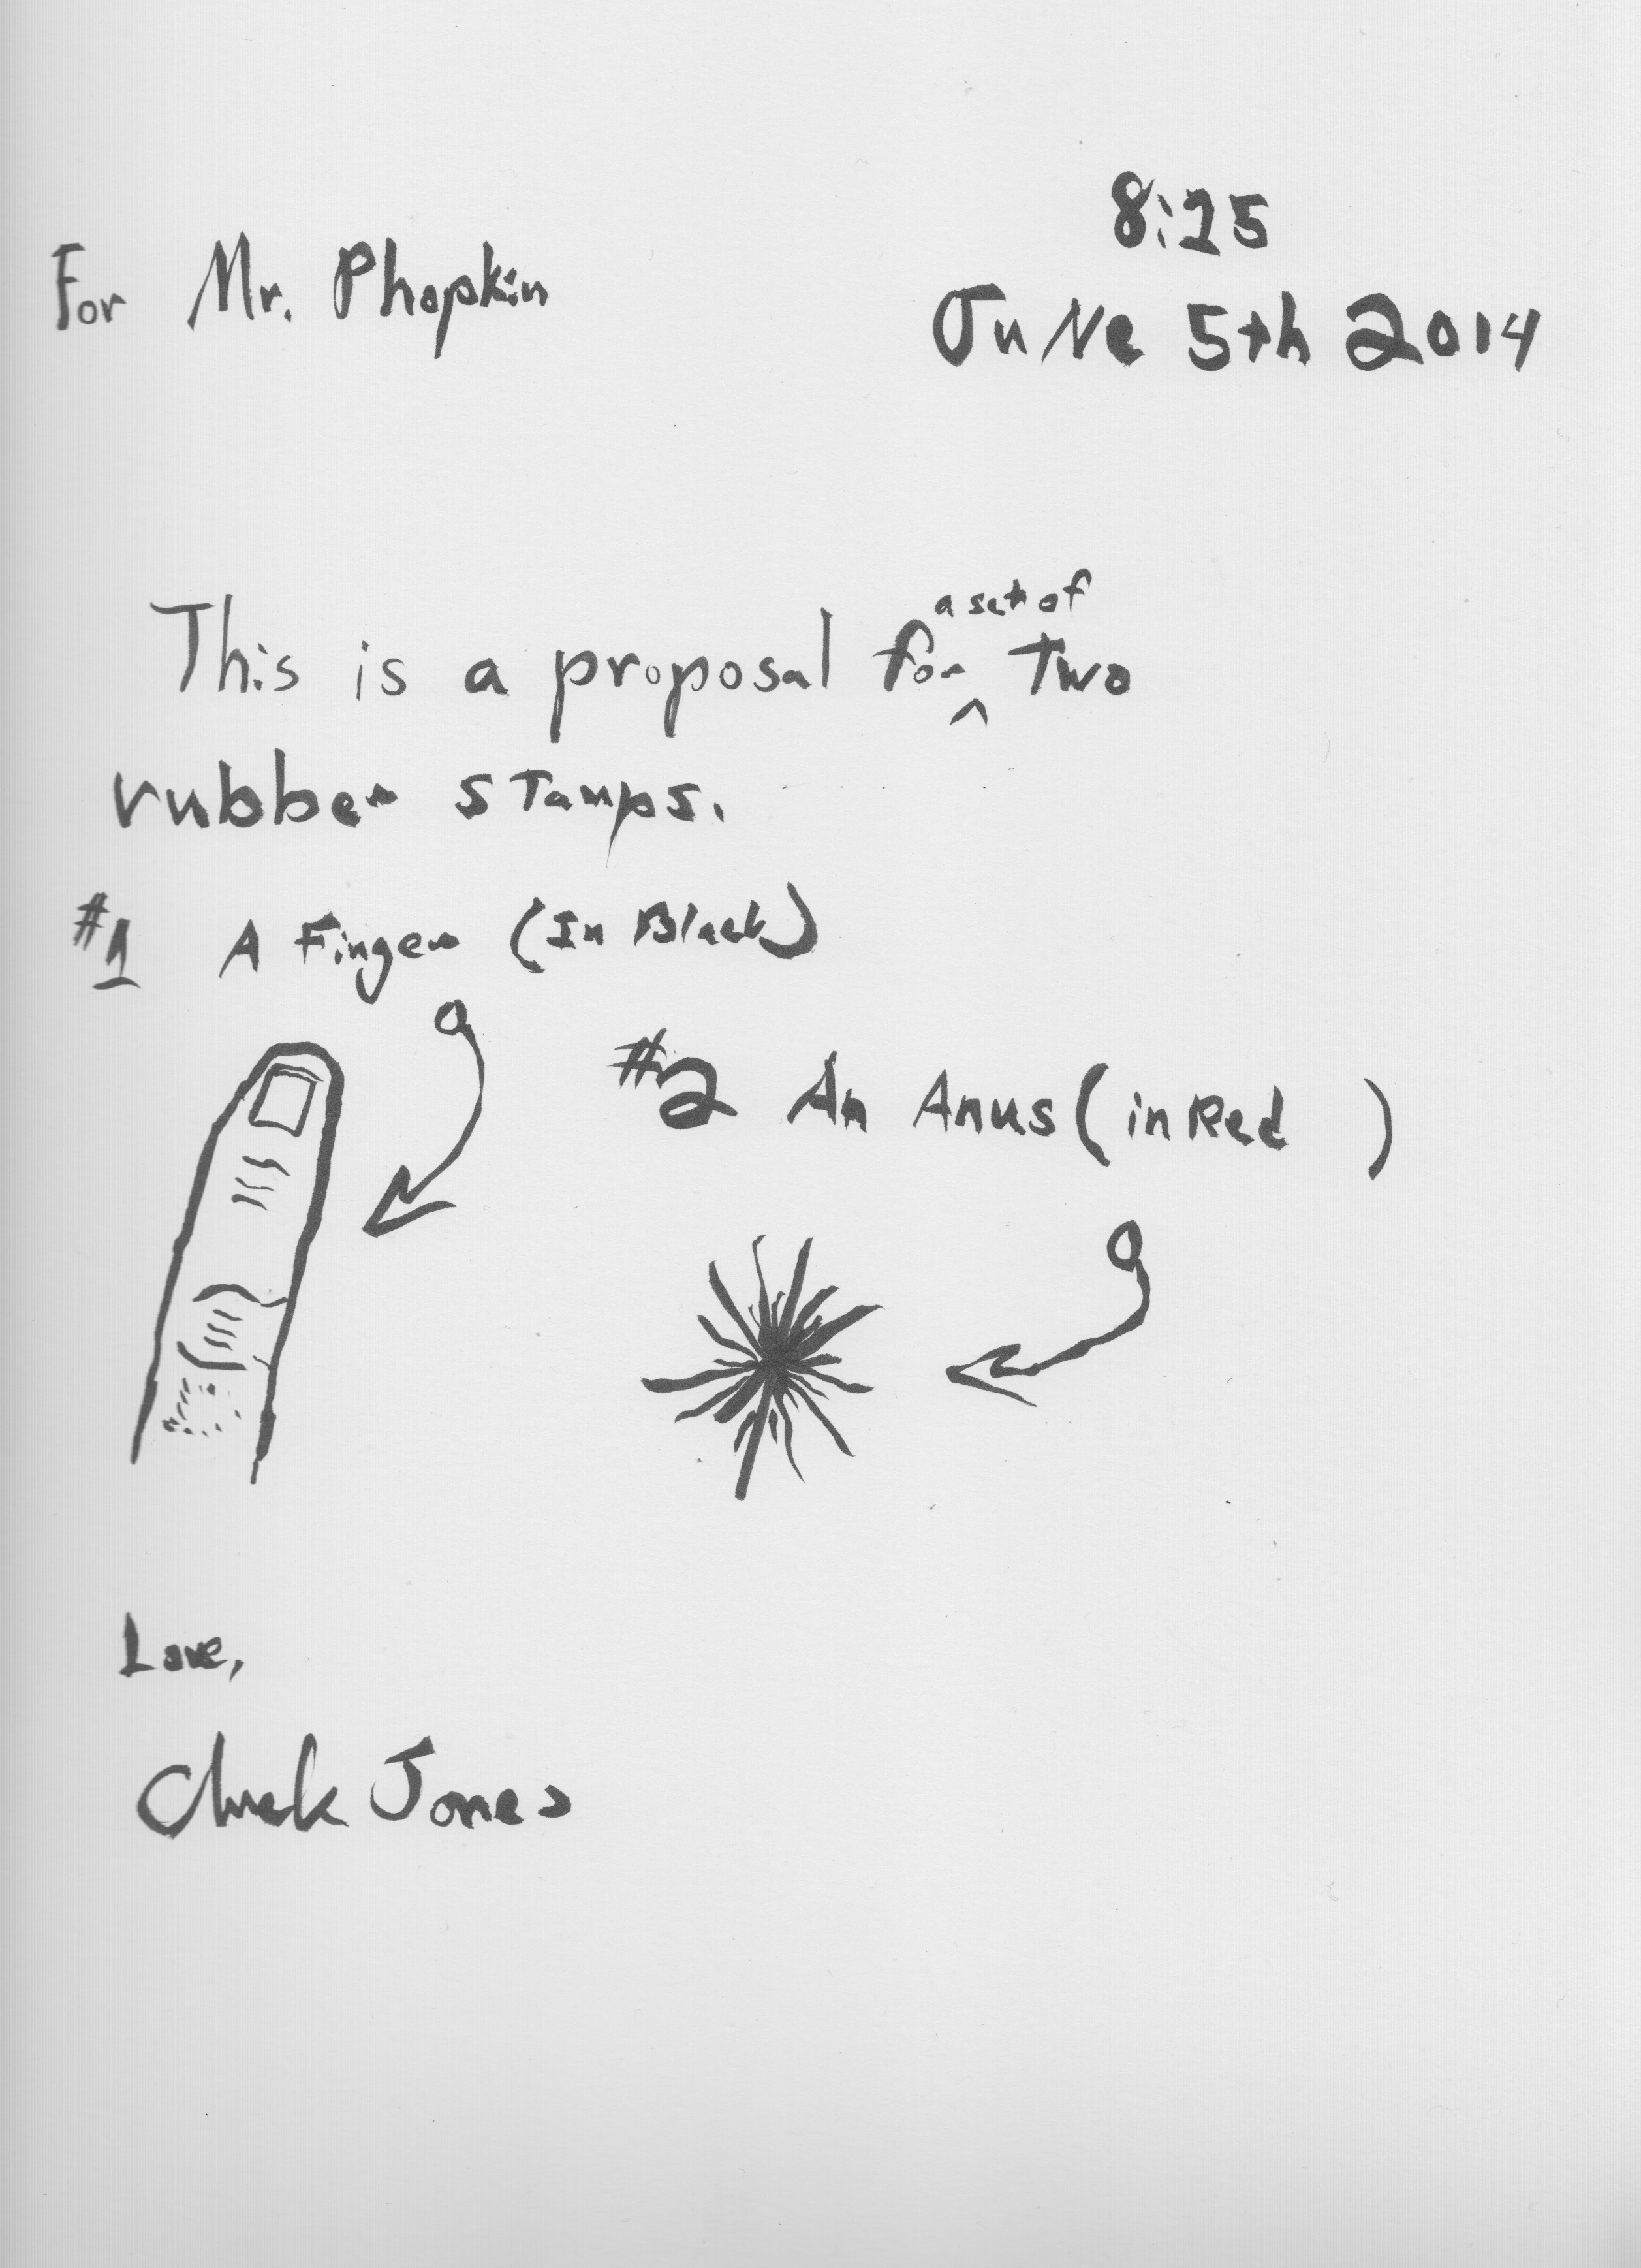 8:25
For Mr. Phopkin
June 5th 2014
a set of
This is a proposal for ^ Two
rubber stamps.
#1 A Finger (In Black)
#2 An Anus (in Red )
Love,
Chuck Jones